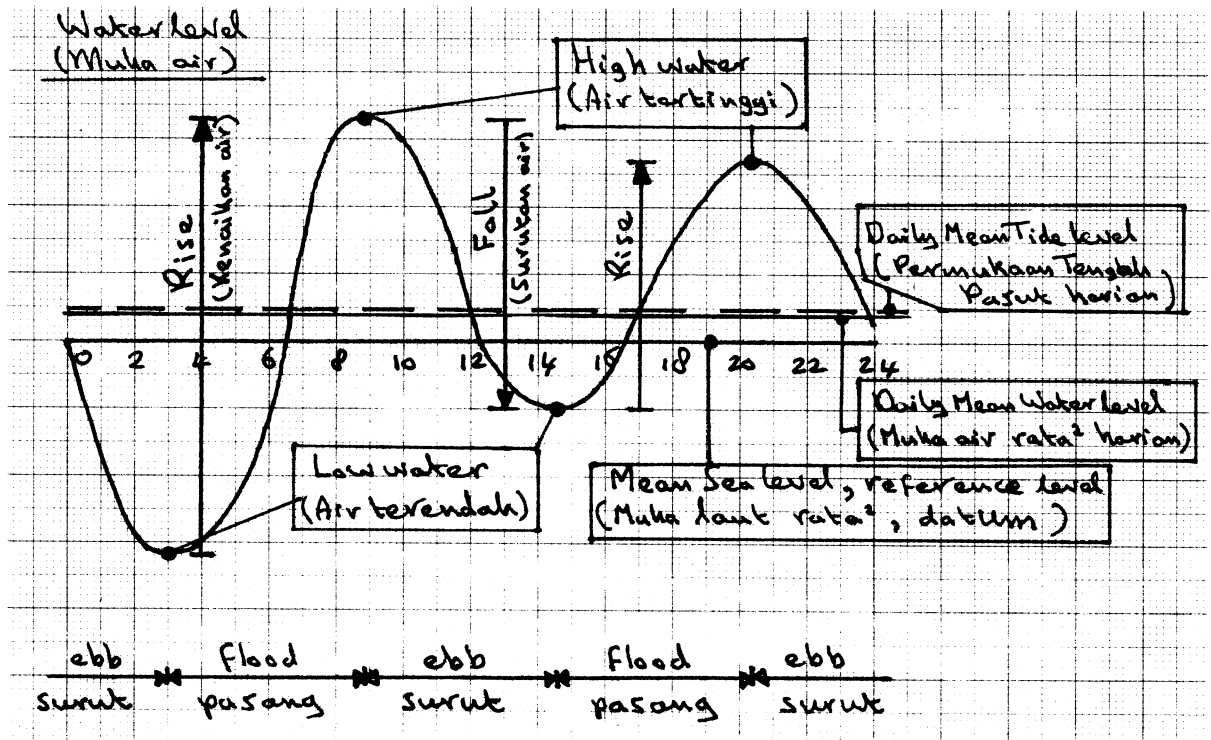 Water level
(Muka air)
High water
(Air tertinggi)
Rise
(Kenaikan air)
Fall
(Surutan air)
Rise
Daily Mean Tide level
(Permukaan Tengah,
Pasut harian)
0 2 4 6 8 10 12 14 16 18 20 22 24
Daily Mean Water level
(Muka air rata² harian)
Low water
(Air terendah)
Mean Sea level, reference level
(Muka laut rata², datum)
ebb flood ebb flood ebb
surut pasang surut pasang surut